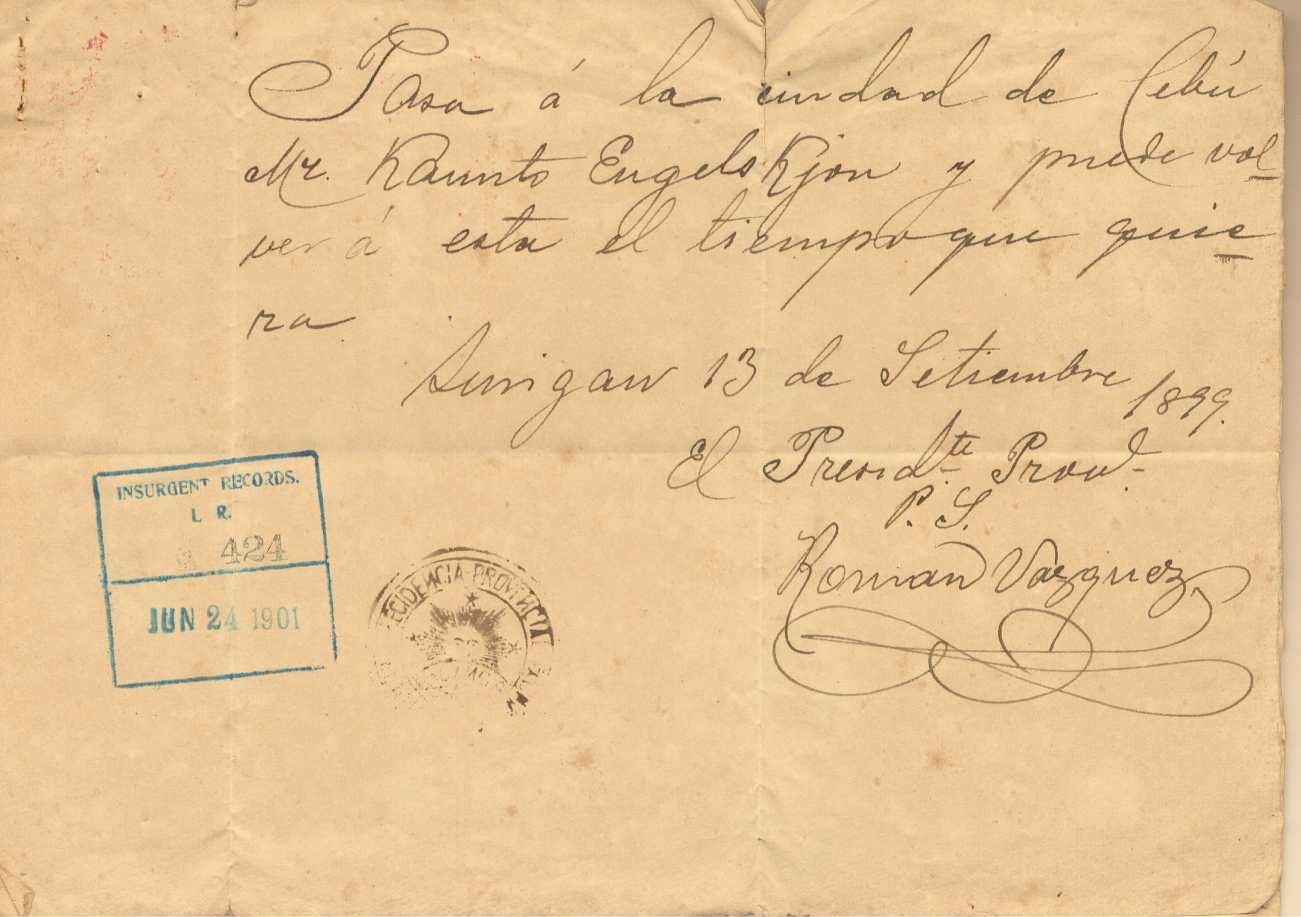 Pasa á la ciudad de Cebú
Mr. Kaunto Engels Kjon y puede vol
ver á esta el tiempo que quie
ra
Surigaw 13 de Setiembre 1899.
El Presid.te Prov.l
P. S.
Roman Vazquez
INSURGENT RECORDS.
L R.
424
JUN 24 1901
PROVINCIAL